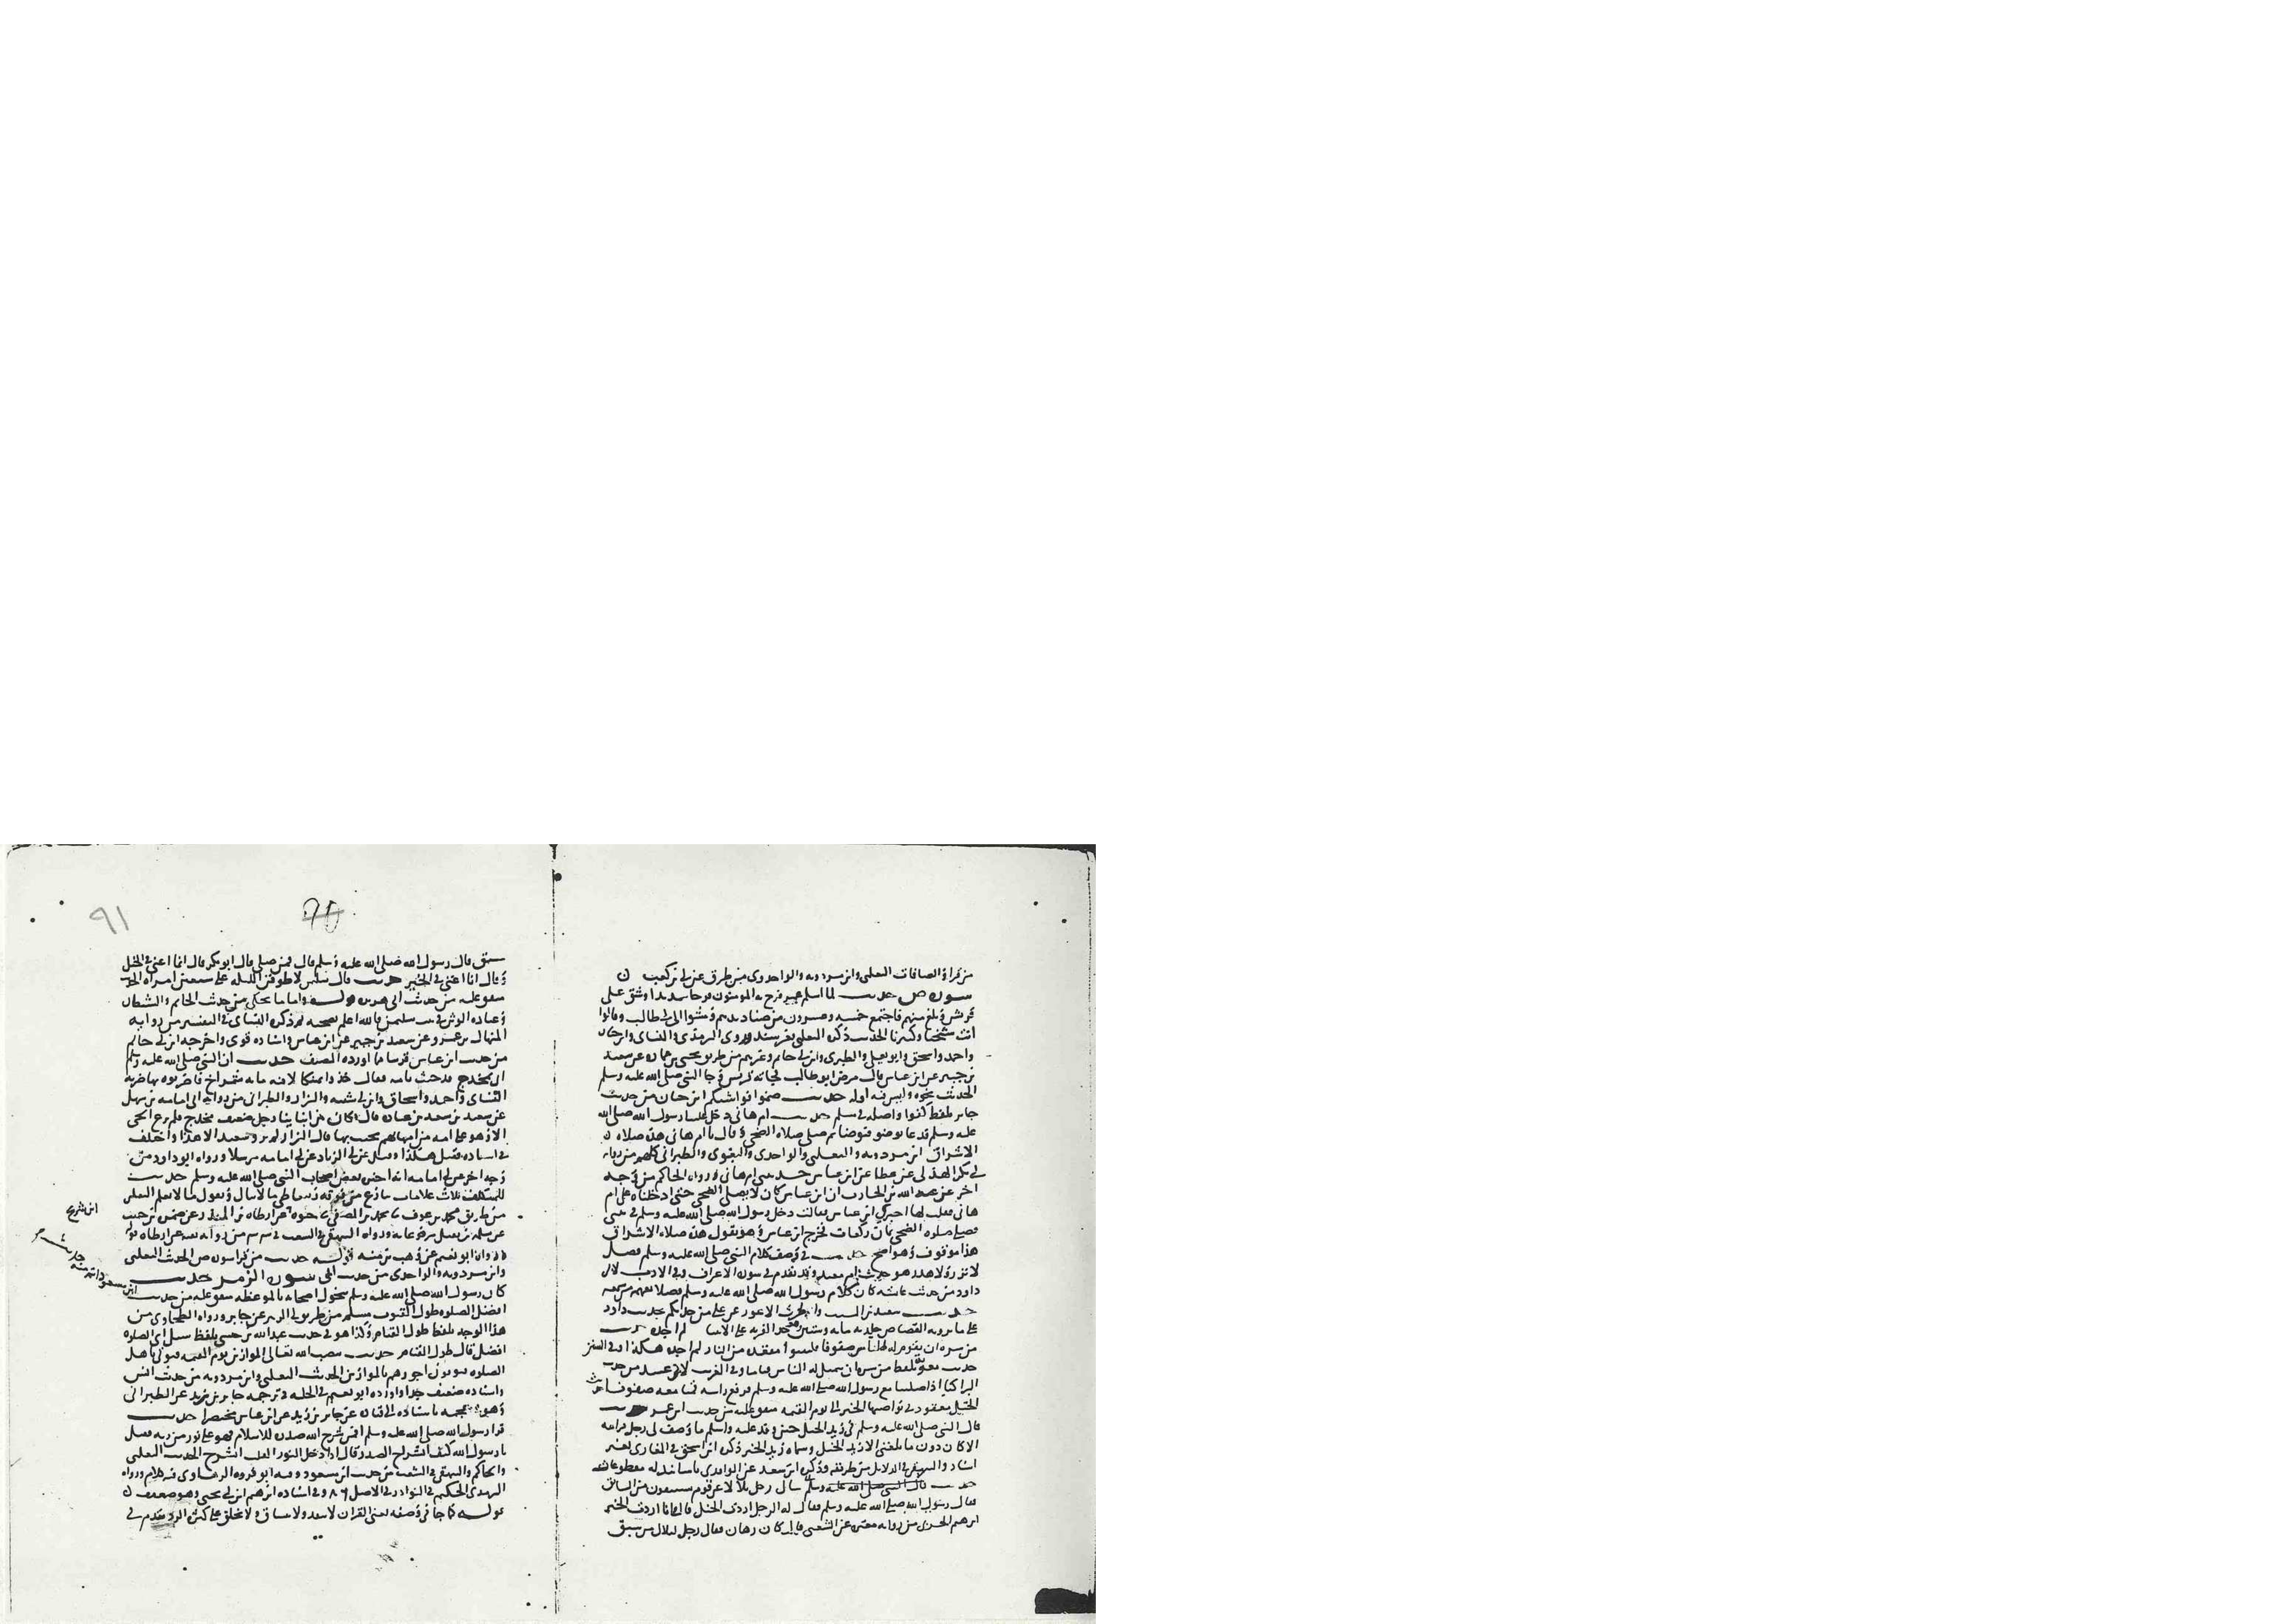 من قرا والصافات الثعلبي وابن مردويه والواحدي من طرق عن ابي بن كعب ن
سورة ص حديث لما اسلم عمر فرح به المومنون فرحا شديدا وشق على
قريش وبلغ منهم فاجتمع خمسة وعشرون من صناديدهم ومشوا الى ابي طالب وقالوا
انت شيخنا وكبيرنا الحديث ذكره الثعلبي بغير سند وروى الترمذي والنساي وابن حبان
واحمد واسحق وابو يعلى والطبري وابن ابي حاتم وغيرهم من طريق يحيى بن عمارة عن سعيد
بن جبير عن ابن عباس قال مرض ابو طالب فجاته قريش وجا النبي صلى الله عليه وسلم
الحديث نحوه وليس فيه اوله حديث ضحوا فواشيكم ابن حبان من حديث
جابر بلفظ كفوا واصله في مسلم حديث ام هاني دخل علينا رسول الله صلى الله
عليه وسلم فدعا بوضو فتوضا ثم صلى صلاة الضحى وقال يا ام هاني هذه صلاة ن
الاشراق ابن مردويه والثعلبي والواحدي والبغوي والطبراني كلهم من رواية
ابي بكر الهذلي عن عطا عن ابن عباس حدثتني ام هاني ورواه الحاكم من وجه
اخر عن عبد الله بن الحارث ان ابن عباس كان لا يصلي الضحى حتى ادخلناه على ام
هاني فقلت لها اخبري ابن عباس فقالت دخل رسول الله صلى الله عليه وسلم في بيتي
فصلى صلاة الضحى ثمان ركعات فخرج ابن عباس وهو يقول هذه صلاة الاشراق
هذا موقوف وهو اصح حديث في وصف كلام النبي صلى الله عليه وسلم فصل
لا نزر ولا هدر هو حديث ام معبد وقد تقدم في سورة الاعراف وفي الادب لابي
داود من حديث عائشة كان كلام رسول الله صلى الله عليه وسلم فصلا يفهمه من سمعه
حديث سعيد بن المسيب والحرث الاعور عن علي من حدثكم بحديث داود
على ما يرويه القصاص جلدته مايه وستين وهو حد الفرية على الانبيا لم اجده حديث
من سره ان يقوم له الناس صفوفا فليتبوا مقعده من النار لم اجده هكذا وفي السنن
حديث معوية بلفظ من سره ان يتمثل له الناس قياما وفي الغريب لابي عبيد من حديث
البرا كنا اذا صلينا مع رسول الله صلى الله عليه وسلم فرفع راسه قمنا معه صفونا حديث
الخيل معقود في نواصيها الخير الى يوم القيمة متفق عليه من حديث ابن عمر حديث
قال النبي صلى الله عليه وسلم في زيد الخيل حين وفد عليه واسلم ما وصف لي رجل فرايته
الا كان دون ما بلغني الا زيد الخيل وسماه زيد الخير ذكره ابن اسحق في المغازي بغير
اسناد والبيهقي في الدلايل من طريقه وذكره ابن سعد عن الواقدي باسانيد له مقطوعة
حديث سال رجل بلالا عن قوم يستبقون من السابق
فقال رسول الله صلى الله عليه وسلم فقال له الرجل اردت الخيل قال وانا اردت الخير
ابرهيم الحربي من رواية مغيرة عن الشعبي قال كان رهان فقال رجل لبلال من سبق
٩١
سبق قال رسول الله صلى الله عليه وسلم قال فمن صلى قال ابو بكر قال انما اعني في الخيل
وقال انا اعني في الخير حديث قال سليمن لاطوفن الليلة على سبعين امراة الحديث
متفق عليه من حديث ابي هريرة قوله واما ما يحكى من حديث الخاتم والشيطان
وعبادة الوثن في بيت سليمن فالله اعلم بصحته ذكره النساي في التفسير من رواية
المنهال بن عمرو عن سعيد بن جبير عن ابن عباس واسناده قوي واخرجه ابن ابي حاتم
من حديث ابن عباس قريبا مما اورده المصنف حديث ان النبي صلى الله عليه وسلم
اتي بمخدج قد خبث بامة فقال خذوا عثكالا فيه مايه شمراخ فاضربوه بها ضربة
النساي واحمد واسحاق وابن ابي شيبة والبزار والطبراني من رواية ابي امامة بن سهل
عن سعيد بن سعد بن عبادة قال كان بين ابياتنا رجل ضعيف مخدج فلم يرع الحي
الا وهو على امة من امايهم يخبث بها قال البزار لم يرو سعيد الا هذا واختلف
في اسناده فقيل هكذا وقيل عن ابي الزناد عن ابي امامة مرسلا ورواه ابو داود من
وجه اخر عن ابي امامة انه اخبره بعض اصحاب النبي صلى الله عليه وسلم حديث
للمتكلف ثلاث علامات ينازع من فوقه ويتعاطى ما لا ينال ويقول ما لا يعلم الثعلبي
من طريق محمد بن عوف ثنا محمد بن المصفى ثنا حيوة عن ارطاة بن المنذر عن ضمرة بن حبيب
عن سلمة بن نفيل مرفوعا به ورواه البيهقي في الشعب من رواية بقية عن ارطاة قوله
ورواه ابو نعيم عن وهب بن منبه قوله حديث من قرا سورة ص الحديث الثعلبي
وابن مردويه والواحدي من حديث ابي سورة الزمر حديث
كان رسول الله صلى الله عليه وسلم يتخول اصحابه بالموعظة متفق عليه من حديث
افضل الصلوة طول القنوت مسلم من طريق ابي الزبير عن جابر ورواه الطحاوي من
هذا الوجه بلفظ طول القيام وكذا هو في حديث عبد الله بن حبشي بلفظ سئل اي الصلوة
افضل قال طول القيام حديث ينصب الله تعالى الموازين يوم القيمة فيوتى باهل
الصلوة فيوتون اجورهم بالموازين الحديث الثعلبي وابن مردويه من حديث انس
واسناده ضعيف جدا واورده ابو نعيم في الحلية في ترجمة جابر بن زيد عن الطبراني
وهو في معجمه باسناده الى قتادة عن جابر بن زيد عن ابن عباس مختصرا حديث
قرا رسول الله صلى الله عليه وسلم افمن شرح الله صدره للاسلام فهو على نور من ربه فقيل
يا رسول الله كيف انشراح الصدر قال اذا دخل النور القلب انشرح الحديث الثعلبي
والحاكم والبيهقي في الشعب من حديث ابن مسعود وفيه ابو فروة الرهاوي فيه كلام ورواه
الترمذي الحكيم في النوادر في الاصل ٨٦ وفي اسناده ابرهيم ابن ابي يحيى وهو ضعيف ن
قوله كما جا في وصفه يعني القران لا يتفه ولا يتشان ولا يخلق على كثرة الرد تقدم في
ابن شريح
ابن مسعود
حديث